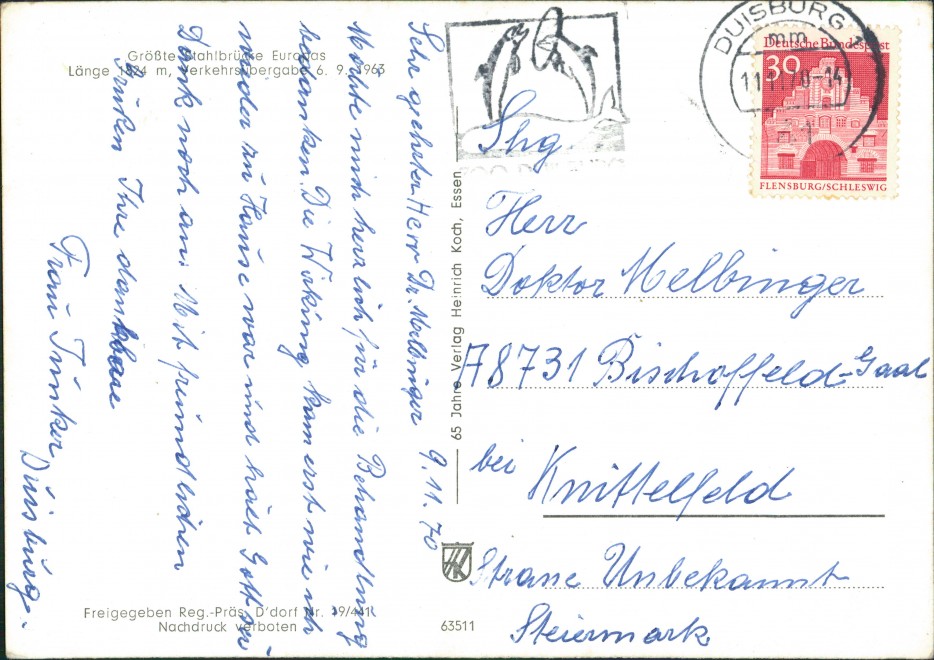 Größte Stahlbrücke Europas
Länge 1824 m, Verkehrsübergabe 6. 9. 1963
Sehr geehrter Herr Dr. Melbinger 9.11.70
Möchte mich herzlich für die Behandlung
bedanken. Die Wirkung kam erst wie ich
wieder zu Hause war und hält Gott sei
Dank noch an. Mit freundlichen
Grüßen Ihre dankbare
Frau Junker Duisburg.
Freigegeben Reg.-Präs. D'dorf Nr. 19/441
Nachdruck verboten
65 Jahre Verlag Heinrich Koch, Essen
HK
63511
DUISBURG 1
mm
11.11.70-14
ZOO DUISBURG
Deutsche Bundespost
30
FLENSBURG/SCHLESWIG
Herr
Doktor Melbinger
A8731 Bischoffeld-Gaal
bei Knittelfeld
Strasse Unbekannt
Steiermark